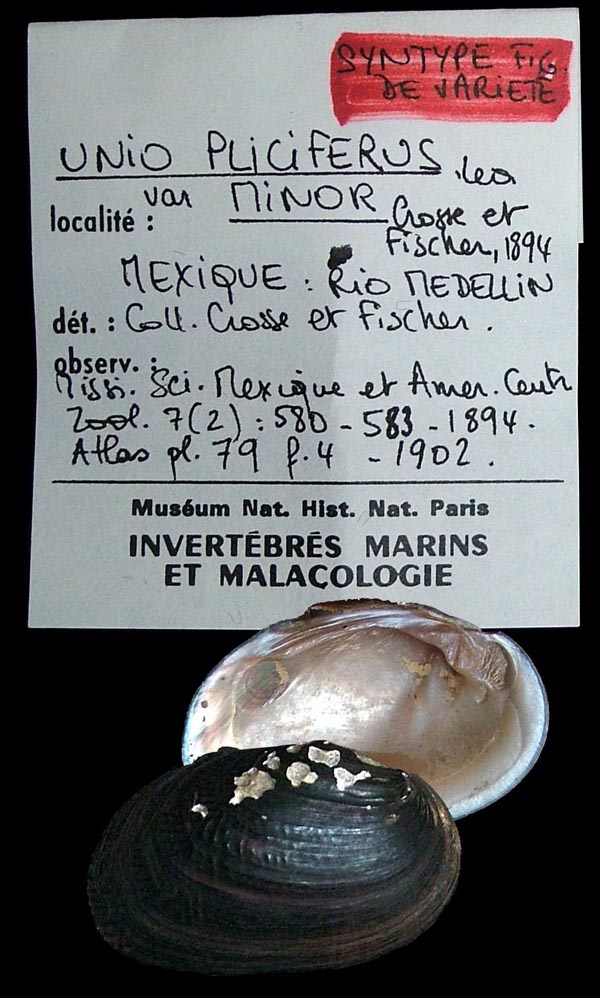 SYNTYPE FIG.
DE VARIETE
UNIO PLICIFERUS, Lea
var MINOR Crosse et
localité : Fischer, 1894
MEXIQUE : Rio MEDELLIN
dét. : Coll. Crosse et Fischer.
observ. :
Missi. Sci. Mexique et Amer. Centr
Zool. 7(2) : 580 - 583 - 1894.
Atlas pl. 79 f. 4 - 1902.
Muséum Nat. Hist. Nat. Paris
INVERTÉBRÉS MARINS
ET MALACOLOGIE